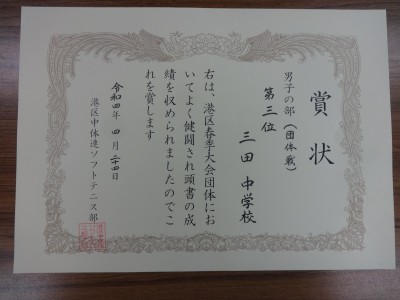 賞状
男子の部(団体戦)
第三位
三田中学校
右は、港区春季大会団体にお
いてよく健闘され頭書の成
績を収められましたのでこ
れを賞します
令和四年 四月二十四日
港区中体連ソフトテニス部